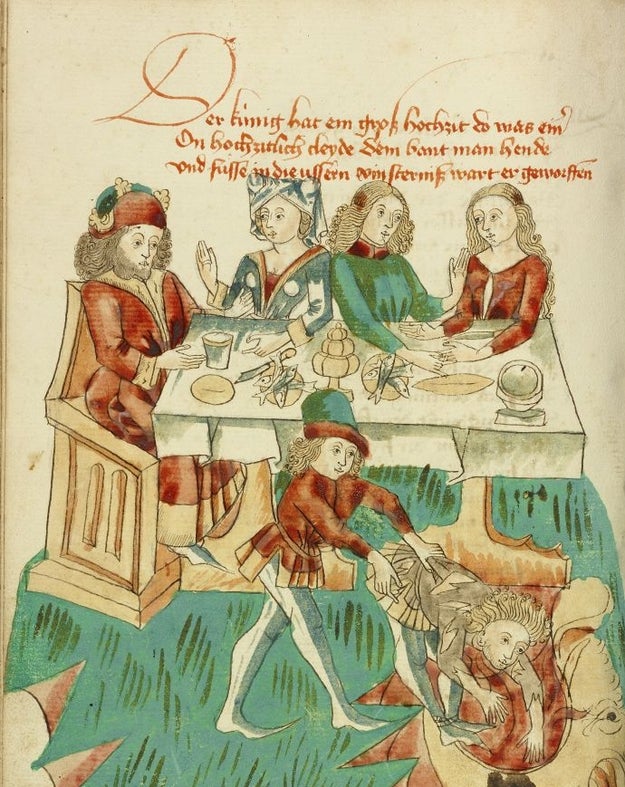 Der kúnig hat ein groß hochzit do was ein
On hochzitlich cleyde dem bant man hende
vnd füsse in die ussern vinsterniß wart er geworffen